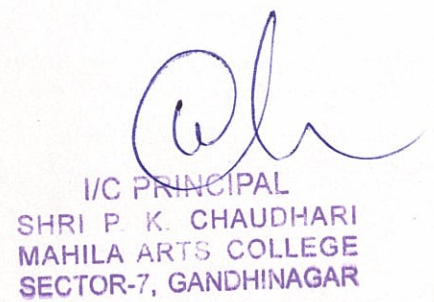 I/C PRINCIPAL
SHRI P. K. CHAUDHARI
MAHILA ARTS COLLEGE
SECTOR-7, GANDHINAGAR